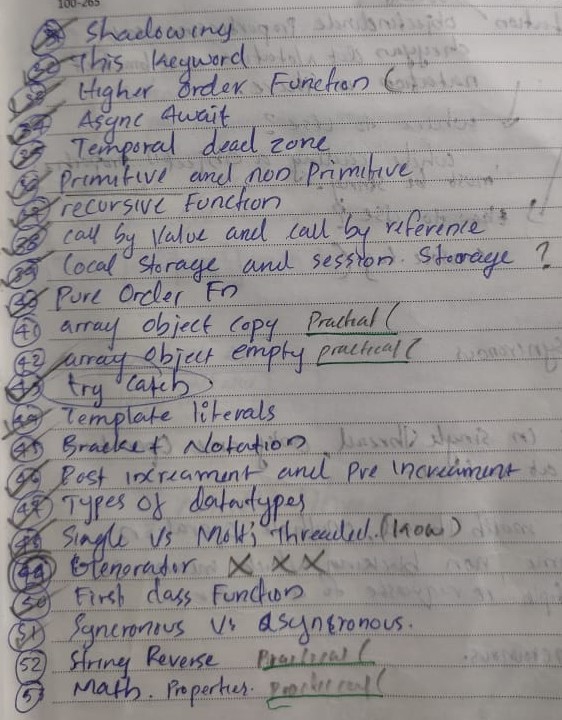 100-265
Shadowing
This Keyword
Higher order Function (
34 Async Await
35 Temporal dead zone
36 Primitive and non Primitive
recursive Function
38 call by value and call by reference
39 Local Storage and session. Storage ?
40 Pure Order Fn
41 array object copy Practical (
42 array object empty practical (
43 try catch
44 Template literals
45 Bracket Notation
46 Post increament and pre increament
47 Types of datatypes
48 Single vs Molti Threaded. (know)
49 Genorador X X X
50 First class Function
51 Syncronous Vs asyncronous.
52 String Reverse Practical (
5 Math. Properties. Practical (